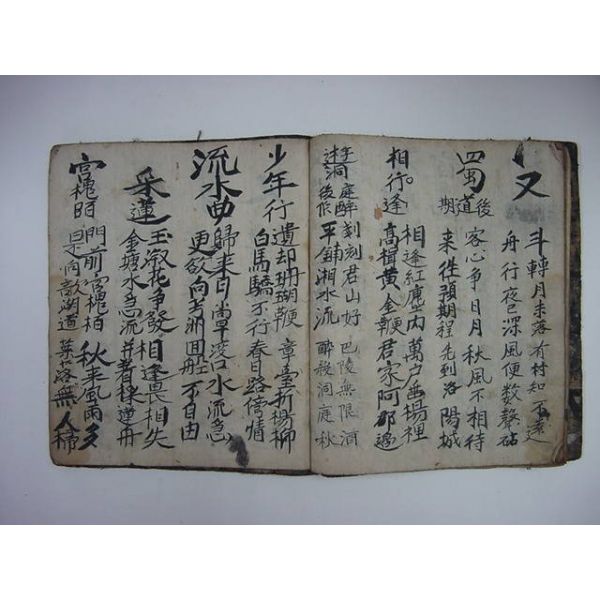 又
斗轉月未落有村知不遠
舟行夜已深風便数聲砧
蜀道後期
客心争日月秋風不相待
来徃預期程先到洛陽城
相逢行
相逢紅塵内萬户垂楊裡
高揖黄金鞭君家阿那邊
洞庭醉後作
刻刻君山好巴陵無限酒
平鋪湘水流醉殺洞庭秋
少年行
遺却珊瑚鞭章臺折楊柳
白馬驕不行春日路傍情
流水曲
歸来日尚早渡口水流急
更欲向芳洲回舡不自由
采蓮
玉溆花争發相逢畏相失
金塘水急流并著採蓮舟
宮槐陌
門前宮槐栢秋来風雨多
是向欹湖道葉落無人掃